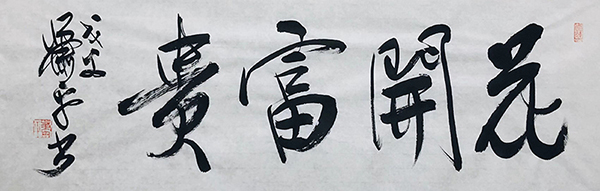 花開富貴
戊戌